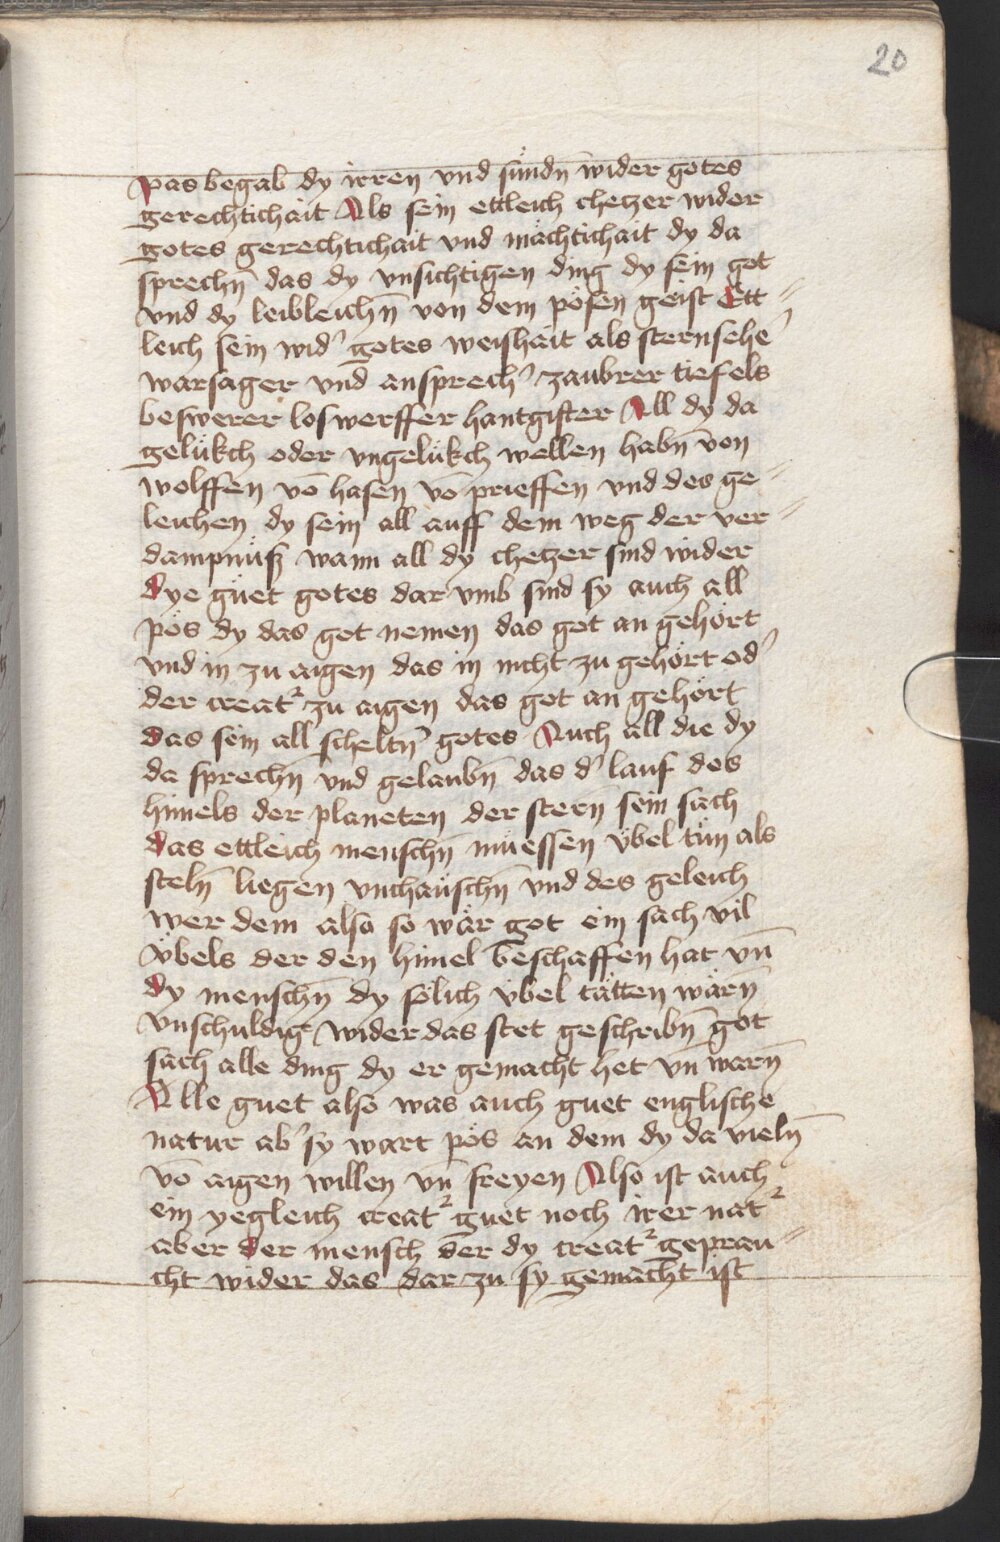 20
pas begab dy irren vnd sünden̄ wider gotes
gerechtichait Als sein ettleich chetzer wider
gotes gerechtichait vnd mächtichait dy da
sprechn̄ das dy vnsichtigen ding dy sein got
vnd dy leibleichn̄ von dem pösen geist Ett⸗
leich sein wid' gotes weishait als sternsehe'
warsager vnd ansprech' zaubrer tiefels
beswerer loswerffer hantgifter All dy da
gelükch oder vngelükch wellen habn̄ von
wolffen vō hasen vō prieffen vnd des ge⸗
leichen dy sein all auff dem weg der ver⸗
dampnüß wann all dy chetzer sind wider
Dye güet gotes dar vmb sind sy auch all
pös dy das got nemen das got an gehört
vnd in zu aigen das in nicht zu gehört od'
der creat² zu aigen das got an gehört
das sein all scheltn̄' gotes Auch all die dy
da sprechn̄ vnd gelaubn̄ das d' lauf des
himels der planeten der stern̄ sein sach
das ettleich menschn̄ müessen vbel tün als
steln̄ liegen vnchäuschn̄ vnd des geleich
wer dem also so wär got ein sach vil
vbels der den himel beschaffen hat vn̄
dy menschn̄ dy sölich vbel tätten wärn̄
vnschuldig wider das stet geschribn̄ got
sach alle ding dy er gemacht het vn̄ warn̄
Alle guet also was auch guet englische
natur ab' sy wart pös an dem dy da vieln̄
vō aigen willen vn̄ freyen Also ist auch
ein yegleich creat² guet noch irer nat²
aber der mensch der dy creat² geprau⸗
cht wider das dar zu sy gemacht ist